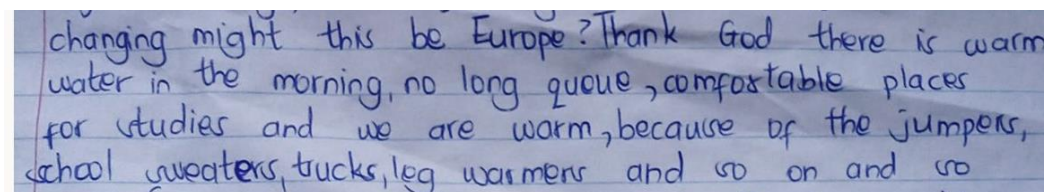 changing might this be Europe? Thank God there is warm
water in the morning, no long queue, comfortable places
for studies and we are warm, because of the jumpers,
school sweaters, trucks, leg warmers and so on and so